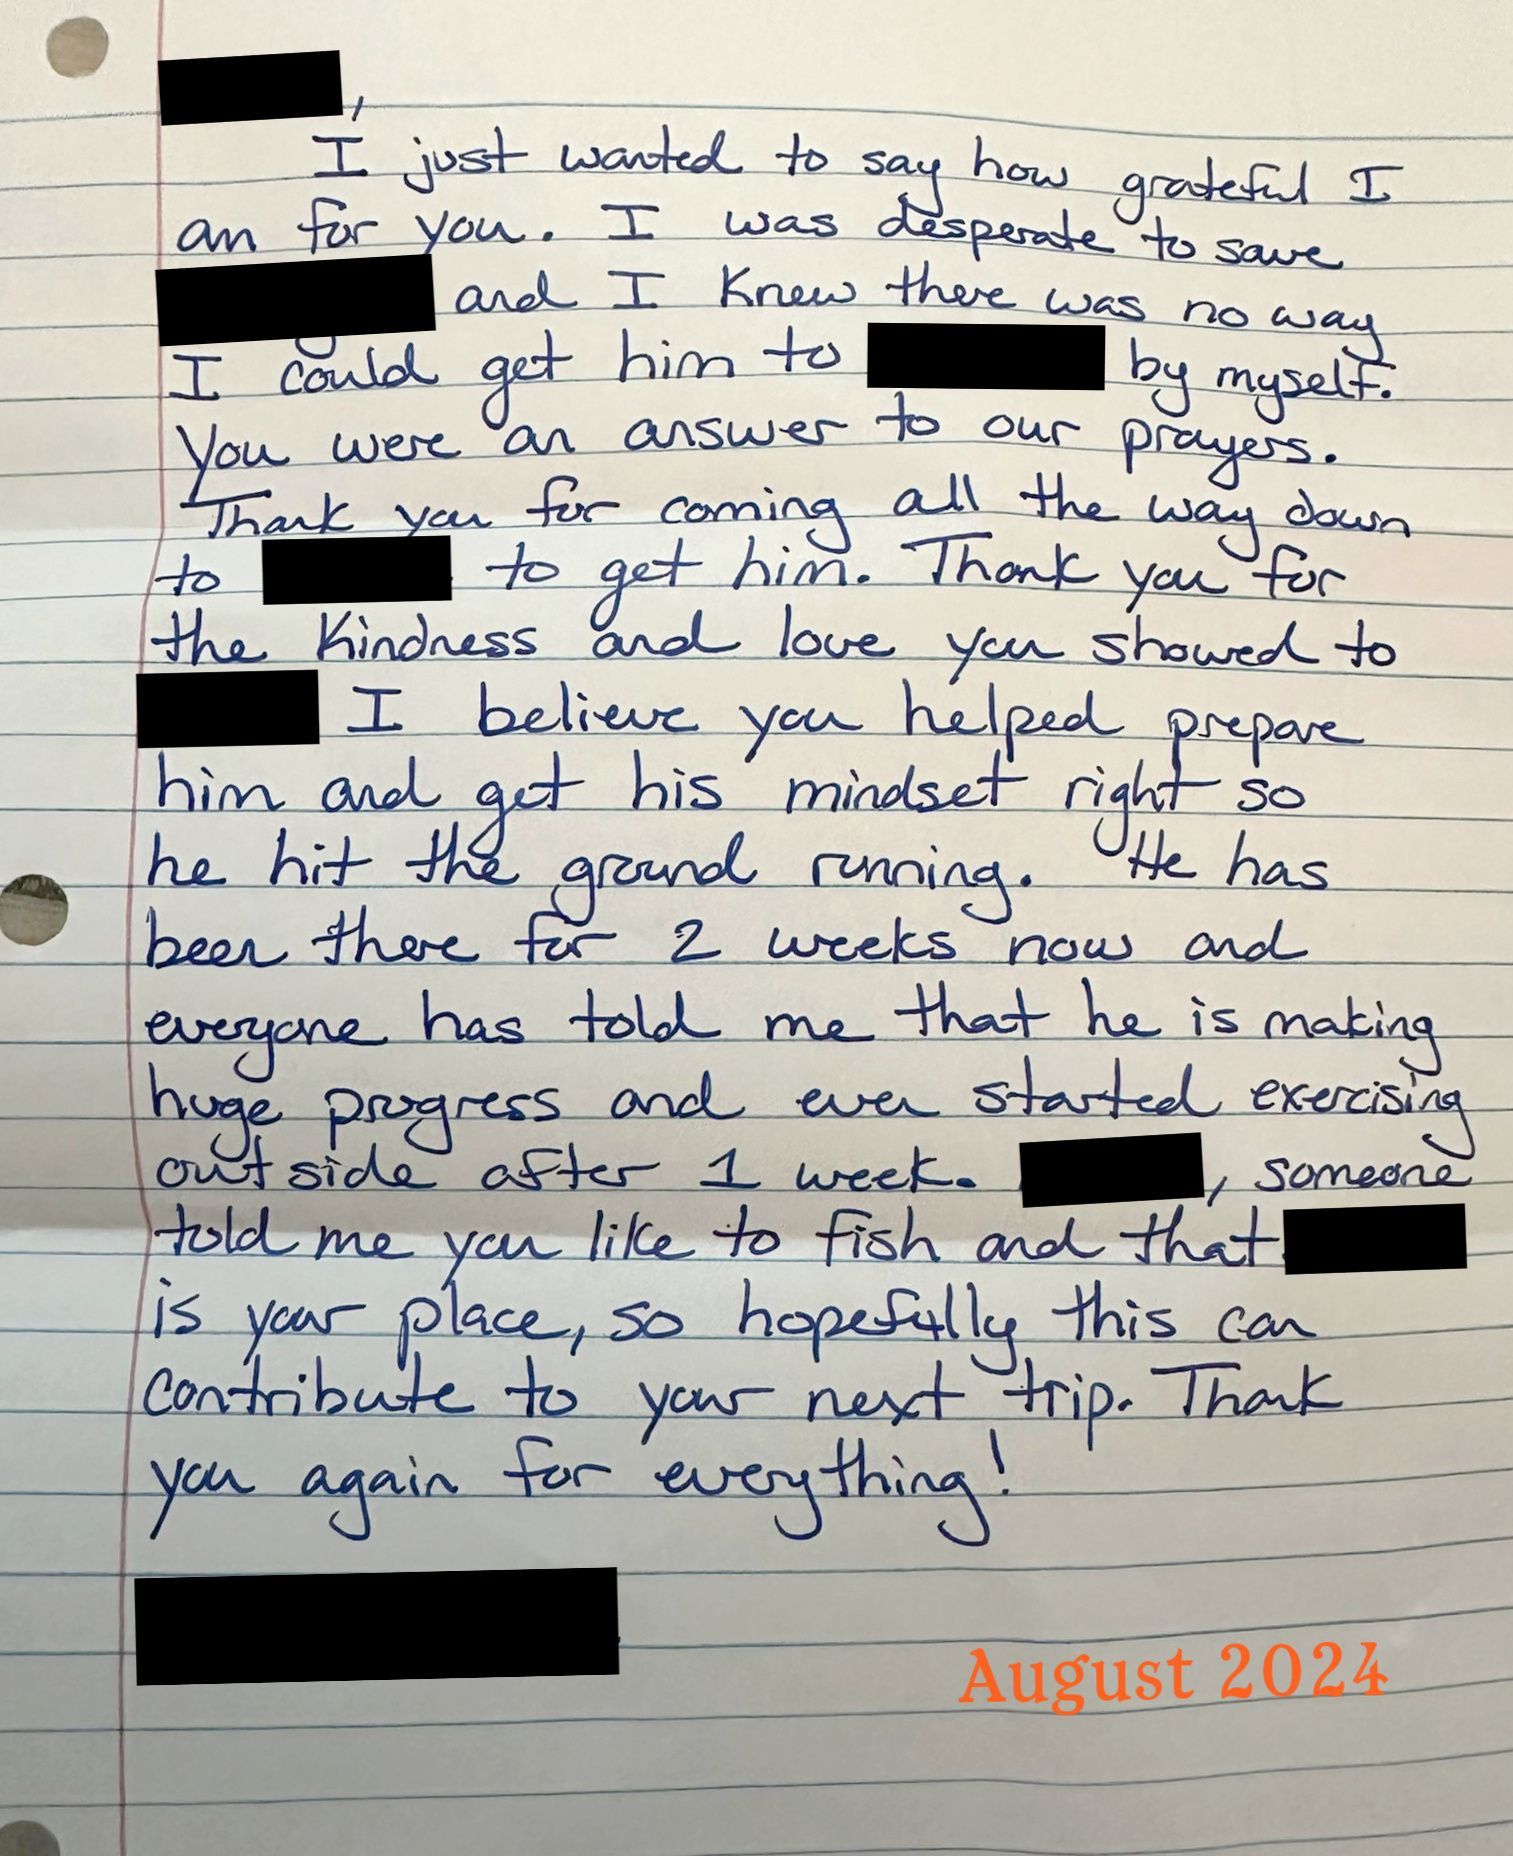 ,
I just wanted to say how grateful I
am for you. I was desperate to save
and I knew there was no way
I could get him to by myself.
You were an answer to our prayers.
Thank you for coming all the way down
to to get him. Thank you for
the kindness and love you showed to
I believe you helped prepare
him and get his mindset right so
he hit the ground running. He has
been there for 2 weeks now and
everyone has told me that he is making
huge progress and even started exercising
outside after 1 week. , someone
told me you like to fish and that
is your place, so hopefully this can
contribute to your next trip. Thank
you again for everything!
August 2024